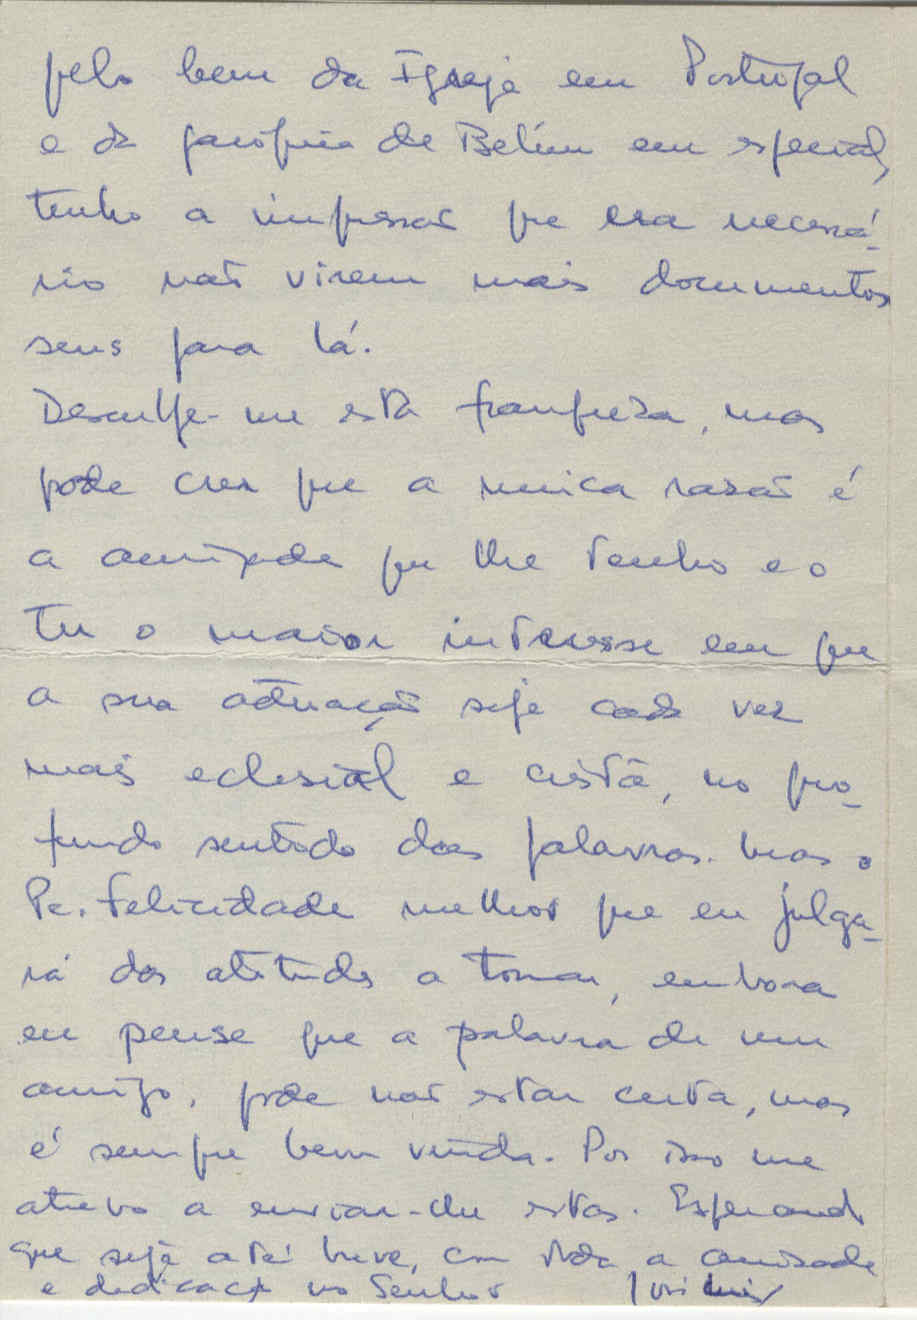 pelo bem da Igreja em Portugal
e da paróquia de Belém em especial,
tenho a impressão que era necessá-
rio não virem mais documentos
seus para lá.
Desculpe-me esta franqueza, mas
pode crer que a única razão é
a amizade que lhe tenho e o
ter o maior interesse em que
a sua actuação seja cada vez
mais eclesial e cristã, no pro-
fundo sentido das palavras. Mas o
Pe. Felicidade melhor que eu julga-
rá das atitudes a tomar, embora
eu pense que a palavra de um
amigo, pode não estar certa, mas
é sempre bem vinda. Por isso me
atrevo a enviar-lhe estas. Esperando
que seja até breve, com toda a amizade
e dedicação no Senhor